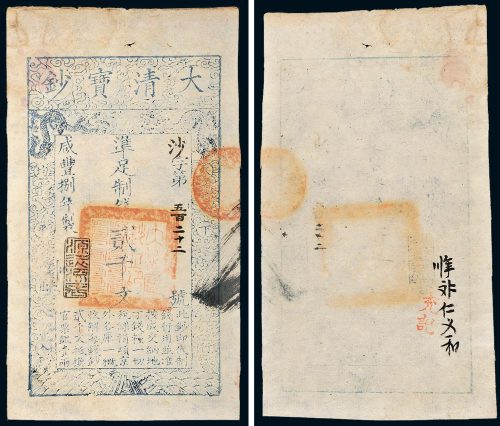 大清寶鈔
沙字第五百二十二號
準足制錢貳千文
咸豐捌年製
此鈔即代制
錢行用並准
按成交納地
丁錢糧一切
稅課捐項京
外各庫一概
收解每錢鈔
貳千文抵換
官票銀壹兩
仁义和